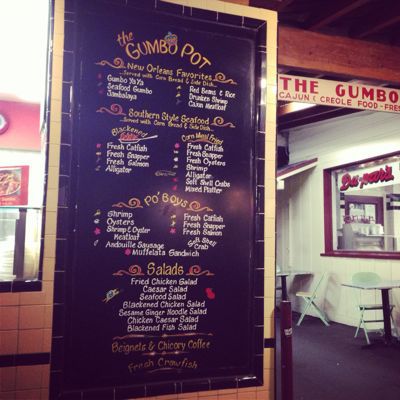 the GUMBO POT
New Orleans Favorites
...Served with Corn Bread & Side Dish...
Gumbo Ya Ya
Seafood Gumbo
Jambalaya
Red Beans & Rice
Drunken Shrimp
Cajun Meatloaf
Southern Style Seafood
...Served with Corn Bread & Side Dish...
Blackened
Fresh Catfish
Fresh Snapper
Fresh Salmon
Alligator
Corn Meal Fried
Fresh Catfish
Fresh Snapper
Fresh Oysters
Shrimp
Alligator
Soft Shell Crabs
Mixed Platter
Po' Boys
Shrimp
Oysters
Shrimp & Oyster
Meatloaf
Andouille Sausage
Muffelata Sandwich
Fresh Catfish
Fresh Snapper
Fresh Salmon
Soft Shell Crab
Salads
Fried Chicken Salad
Caesar Salad
Seafood Salad
Blackened Chicken Salad
Sesame Ginger Noodle Salad
Chicken Caesar Salad
Blackened Fish Salad
Beignets & Chicory Coffee
Fresh Crawfish
THE GUMBO
CAJUN & CREOLE FOOD - FRES